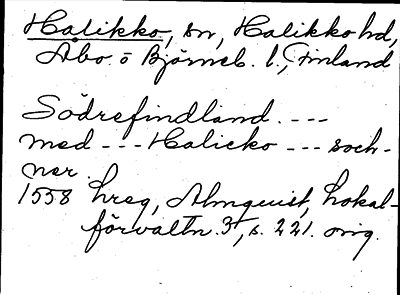 Halikko, sn, Halikko hd,
Åbo o Björneb. l., Finland
Södrefindland. ---
med --- Halicko --- soch-
ner.
1558 hreg, Almquist, Lokal-
förvaltn. 3, s. 221. orig.